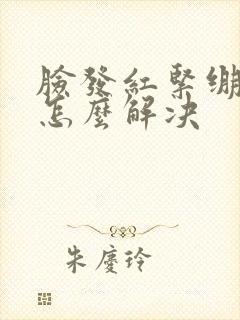 臉發紅緊绷
怎麼解决
朱慶玲